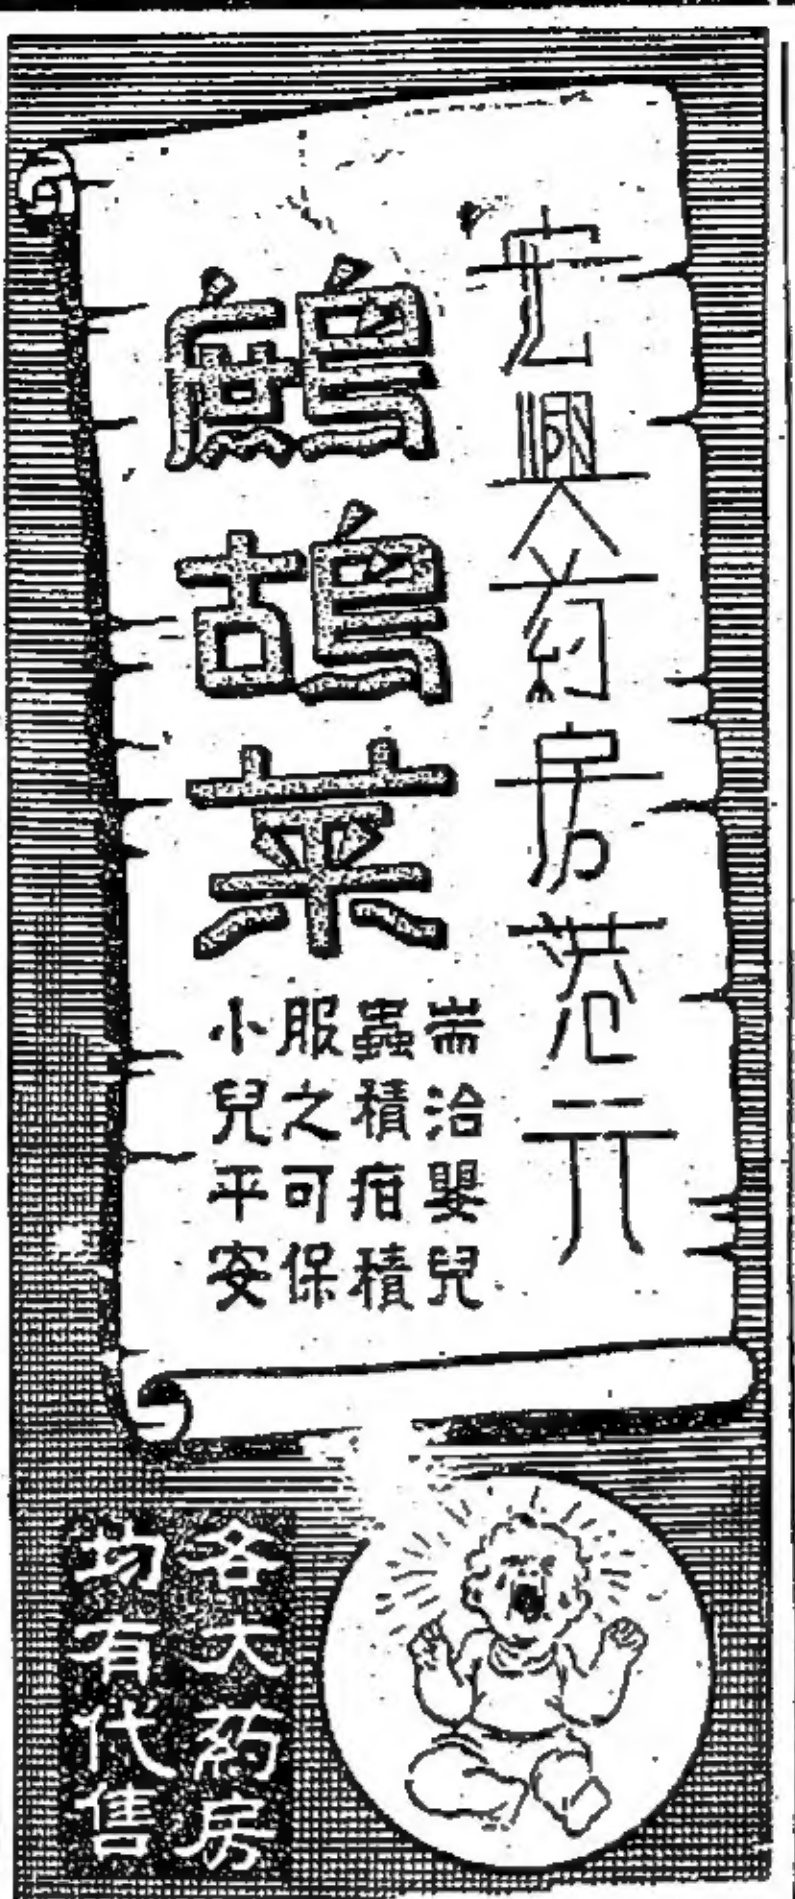 宏興药房港行
鷓鴣菜
耑治嬰兒
蟲積疳積
服之可保
小兒平安
各大药房
均有代售